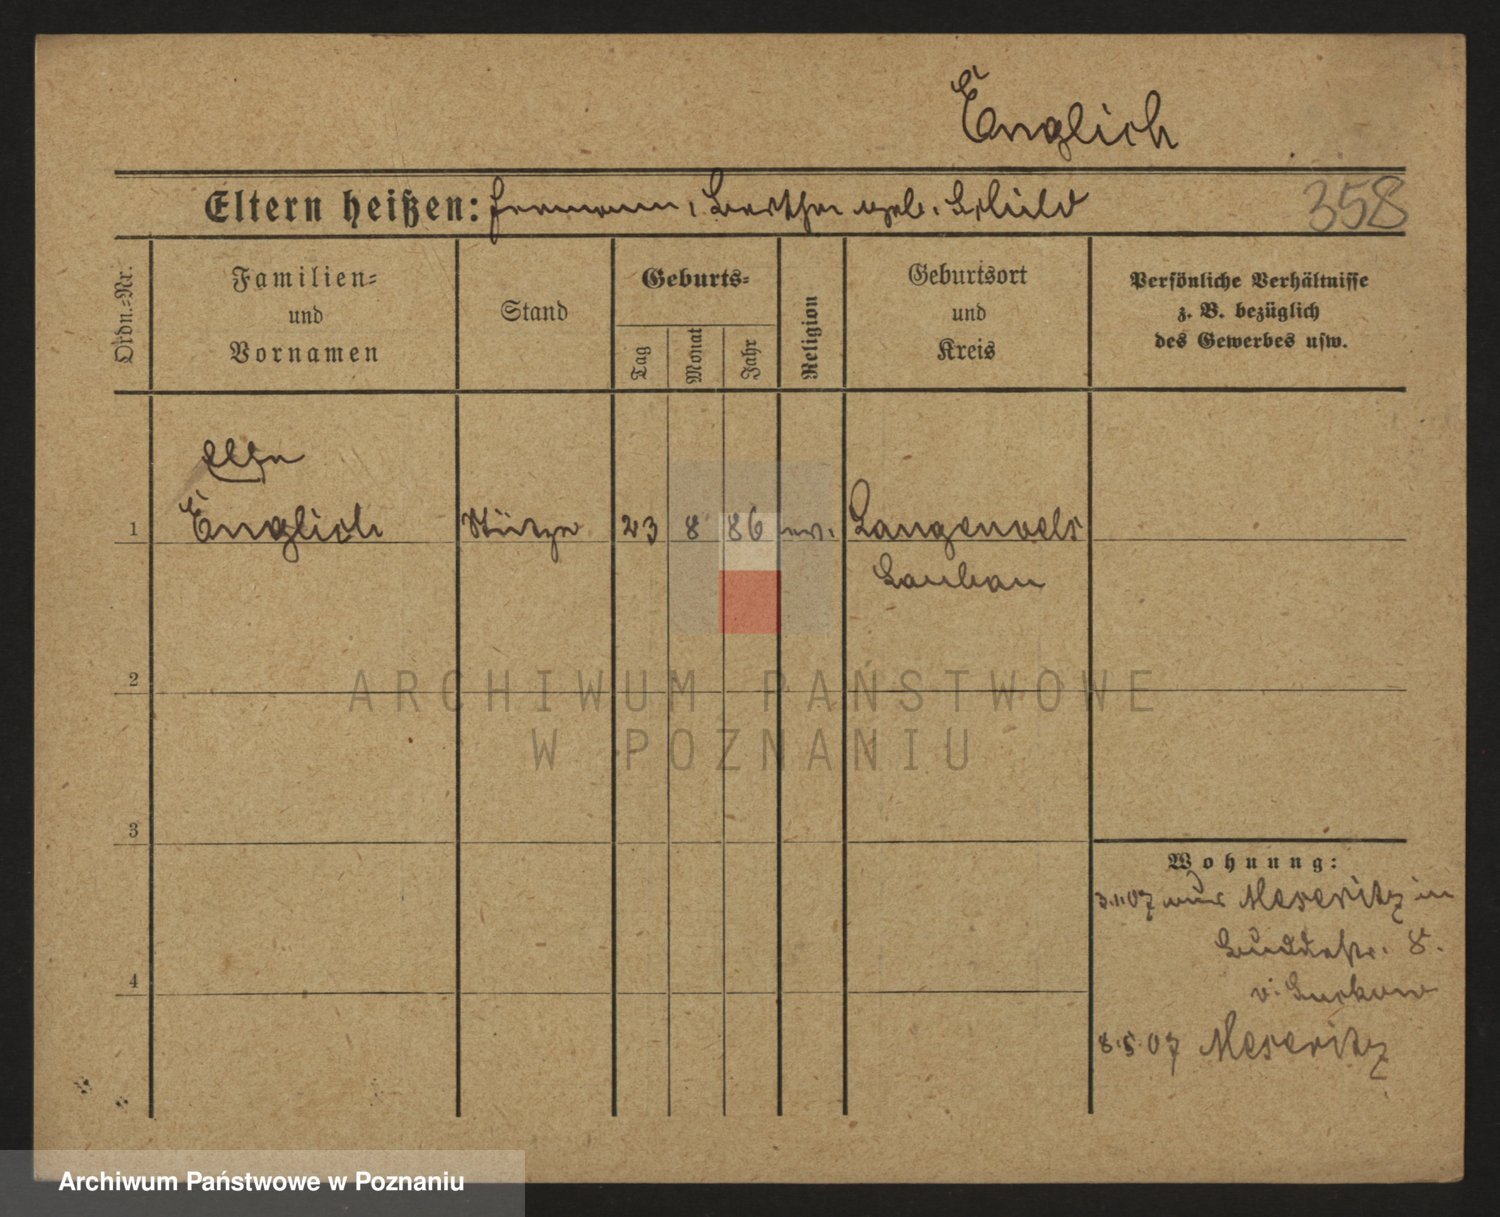 Englich
Eltern heißen: Hermann, Bertha geb. Schild
358
Ordn.-Nr.
Familien-
und
Vornamen
Stand
Geburts-
Tag
Monat
Jahr
Religion
Geburtsort
und
Kreis
Persönliche Verhältnisse
z. B. bezüglich
des Gewerbes usw.
Else
1 Englich Stütze 23 8 86 ev. Langenoels
Lauban
ARCHIWUM PAŃSTWOWE
W POZNANIU
2
3
4
Wohnung:
3.1.07 aus Meseritz in
8.
v.
8.5.07 Meseritz
Archiwum Państwowe w Poznaniu